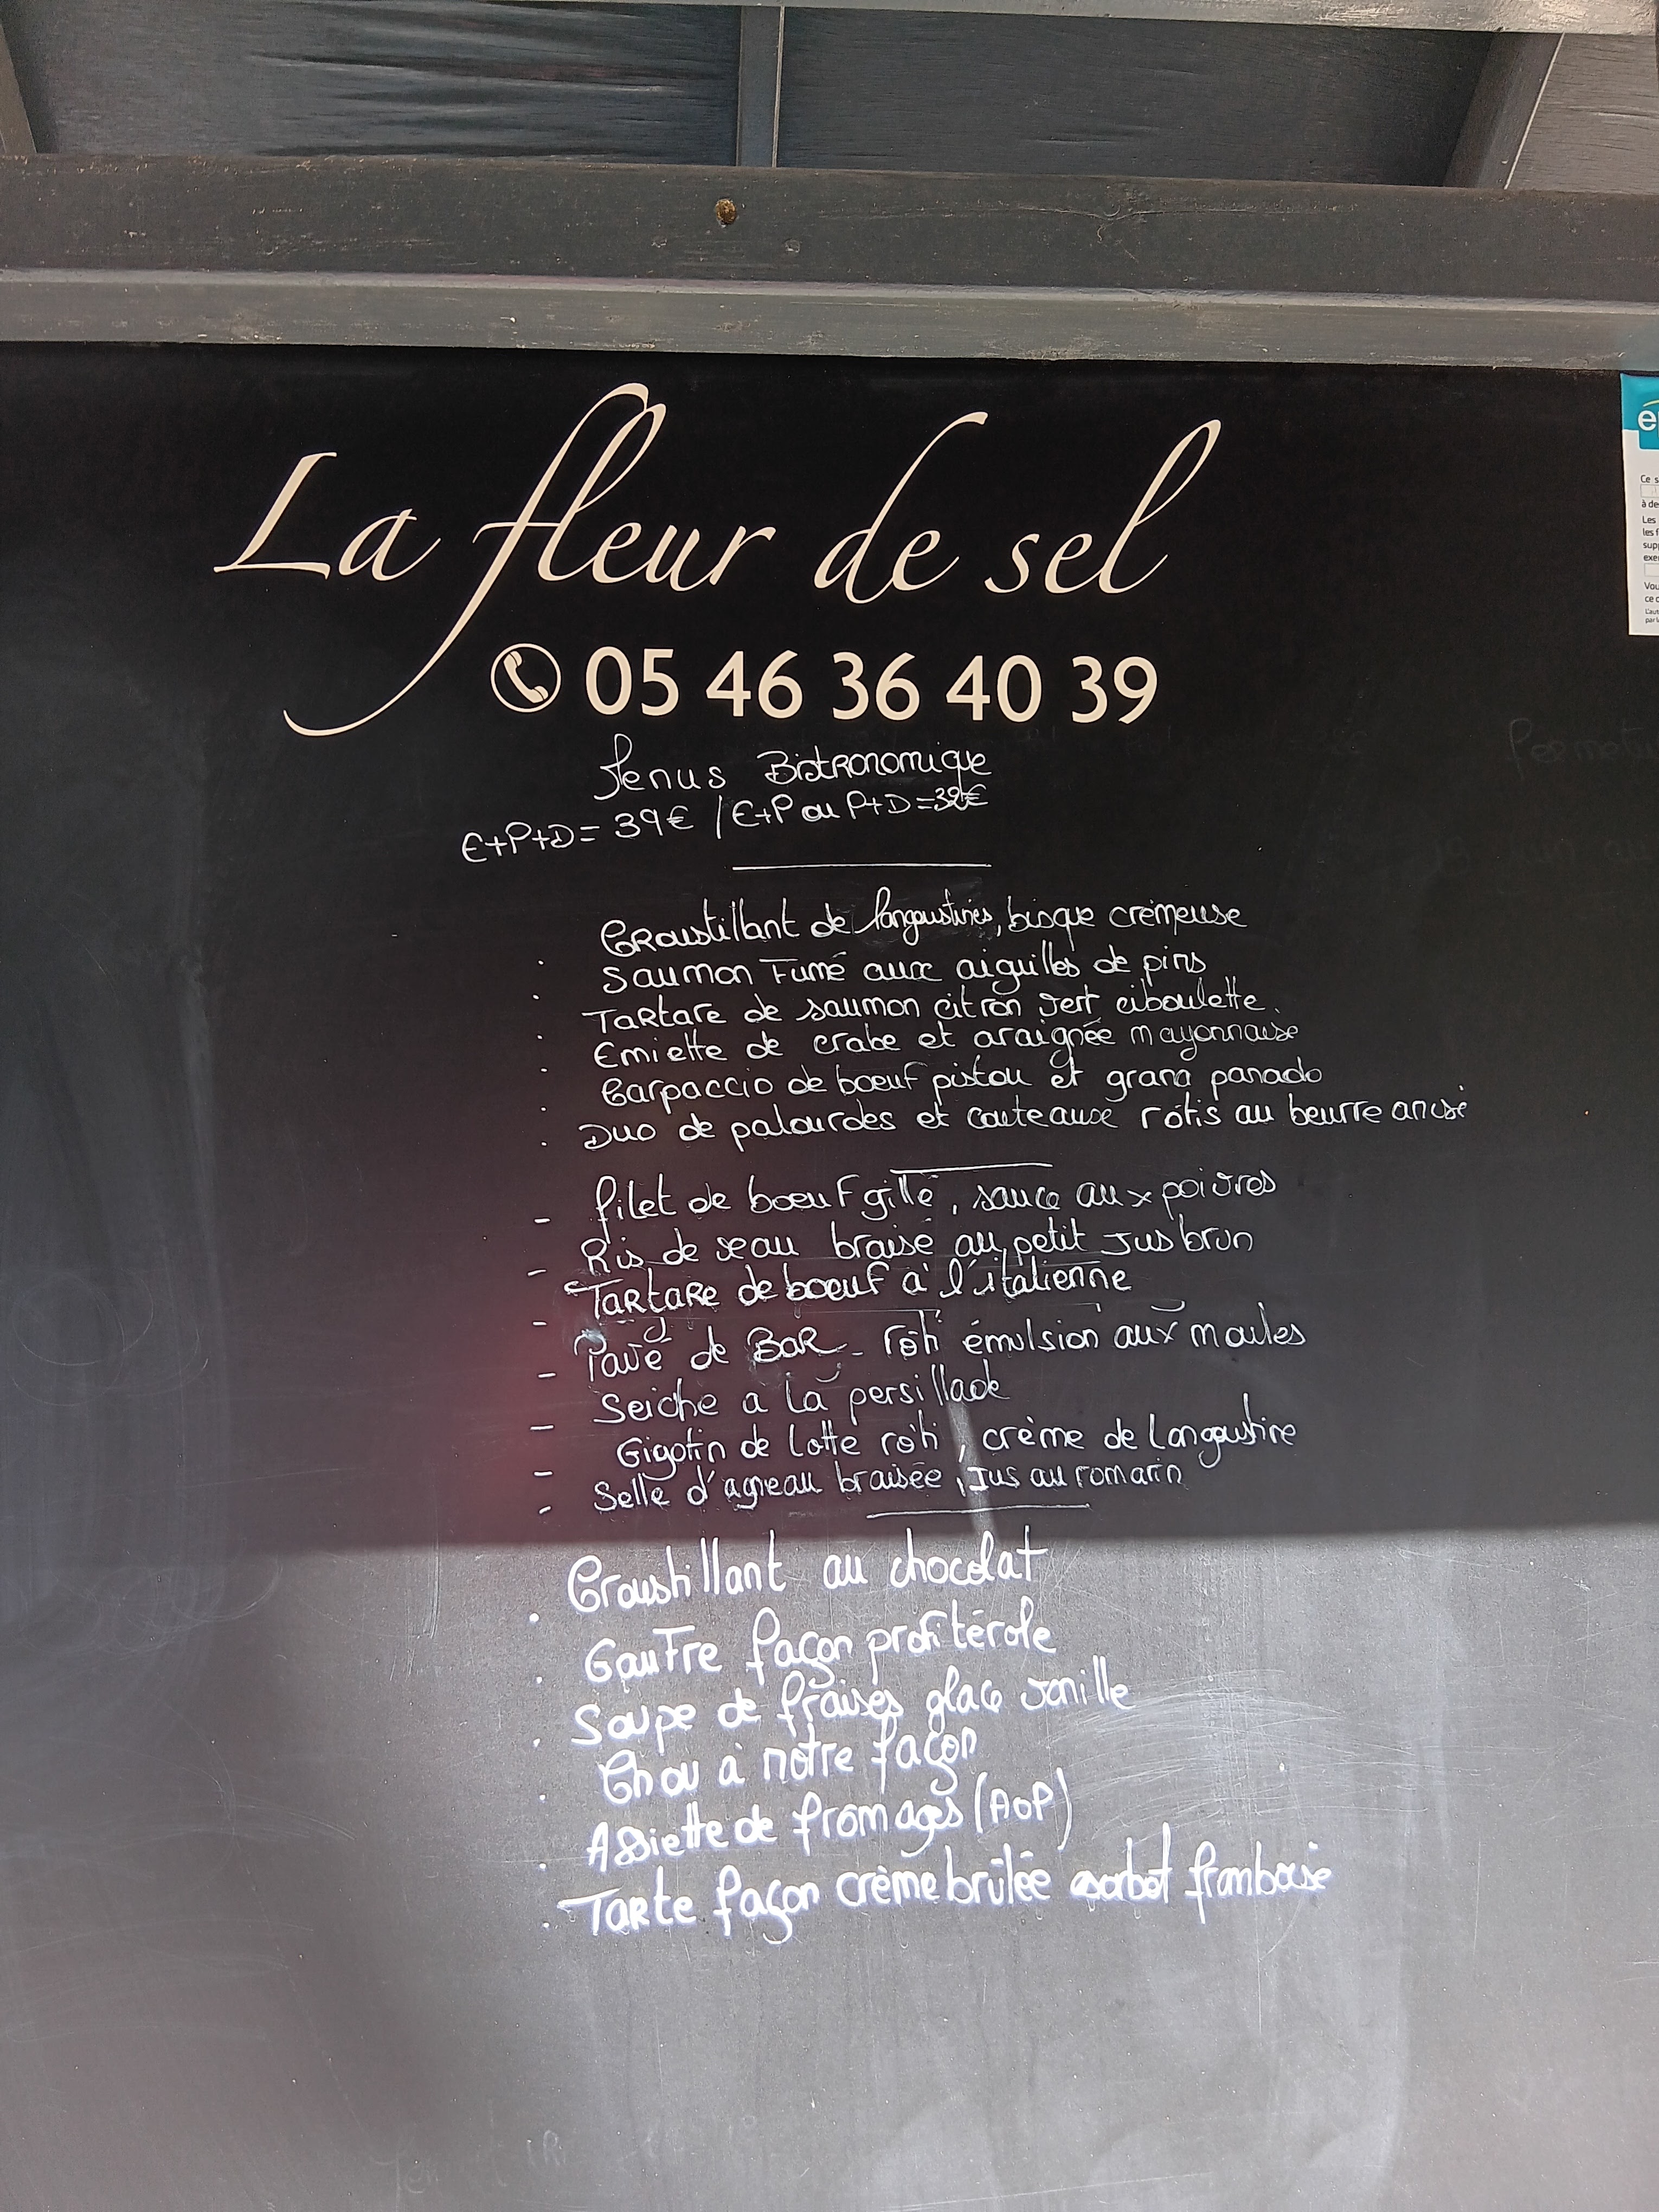 La fleur de sel
05 46 36 40 39
Menus Bistronomique
E+P+D= 39€ / E+P ou P+D=32€
Croustillant de langoustines, bisque crémeuse
· Saumon Fumé aux aiguilles de pins
· Tartare de saumon citron vert ciboulette.
· Emiette de crabe et araignée mayonnaise
· Carpaccio de boeuf pistou et grana panado
· Duo de palourdes et couteaux rôtis au beurre
- filet de boeuf gillé, sauce aux poivres
- Ris de veau braisé au petit Jus brun
- Tartare de boeuf à l'italienne
- Pavé de BAR - rôti émulsion aux moules
- Seiche a la persillade
- Gigotin de lotte rôti, crème de langoustine
- Selle d'agneau braisée, Jus au romarin
Croustillant au chocolat
· Gaufre façon profitérole
· Soupe de fraises glace vanille
· Chou à nôtre façon
· Assiette de fromages (AOP)
· Tarte façon crème brûlée sorbet framboise
e
Ce s
à de
Les
les f
sup
exer
Vou
ce c
L'aut
par l